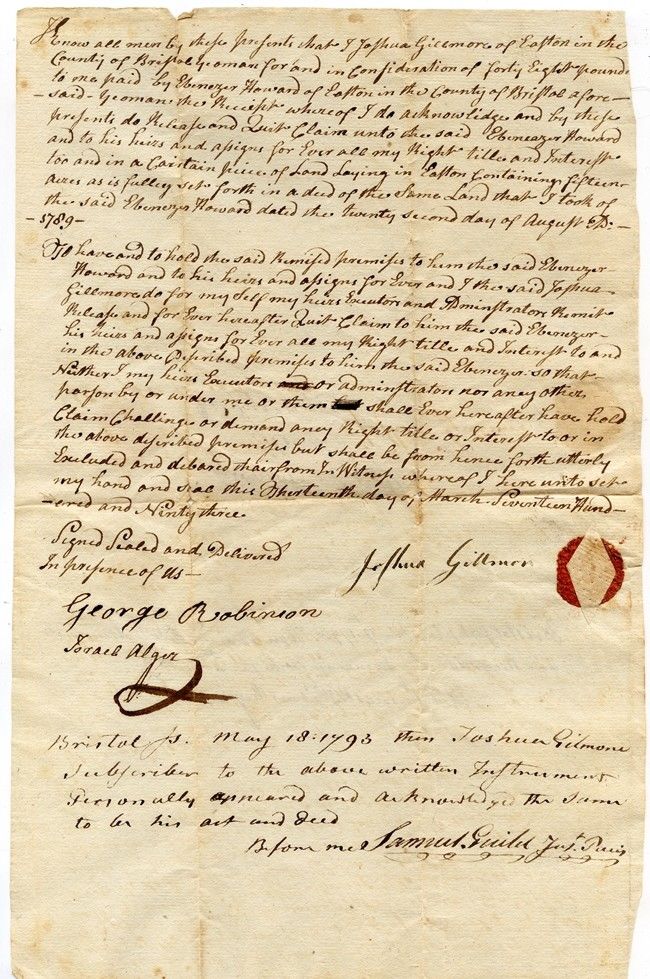 Know all men by these presents that I Joshua Gillmore of Easton in the
County of Bristol yeoman for and in Consideration of forty Eight pounds
to me paid by Ebenezer Howard of Easton in the County of Bristol afore–
–said – yeoman the Receipt whereof I do acknowledge and by these
presents do Release and Quit Claim unto the said Ebeneazer Howard
and to his heirs and assigns for Ever all my Right title and Interest
too and in a Cairtain piece of Land Laying in Easton Containing fifteen
acres as is fulley set forth in a deed of the Same Land that I took of
the said Ebenezer Howard dated the twenty second day of August AD:–
–1789–
To have and to hold the said Remised premises to him the said Ebenezer
Howard and to his heirs and assigns for Ever and I the said Joshua
Gillmore do for my self my heirs Executors and Adminstrators Remit
Release and for Ever hereafter Quit Claim to him the said Ebenezer–
his heirs and assigns for Ever all my Right title and Interest to and
in the above Discribed premises to him the said Ebenezer: so that–
Neither I my heirs Executors or adminstrators nor aney other
parson by or under me or them shall Ever hereafter have hold
Claim Challinge or demand aney Right title or Interest to or in
the above discribed premises but shall be from hence forth utterly
Excluded and debared thairfrom In Witness whereof I here unto set
my hand and seal this thirteenth day of March Seventeen Hund–
–ered and Ninty three
Signed Sealed and Delivered
In presence of Us–
Joshua Gillmor
George Robinson
Israel Alger
Bristol Js. May 18: 1793 then Joshua Gilmore
Subscriber to the above written Instrument
Personally appeared and acknowledged the same
to be his act and deed
Before me Samuel Guild Just. Pacis